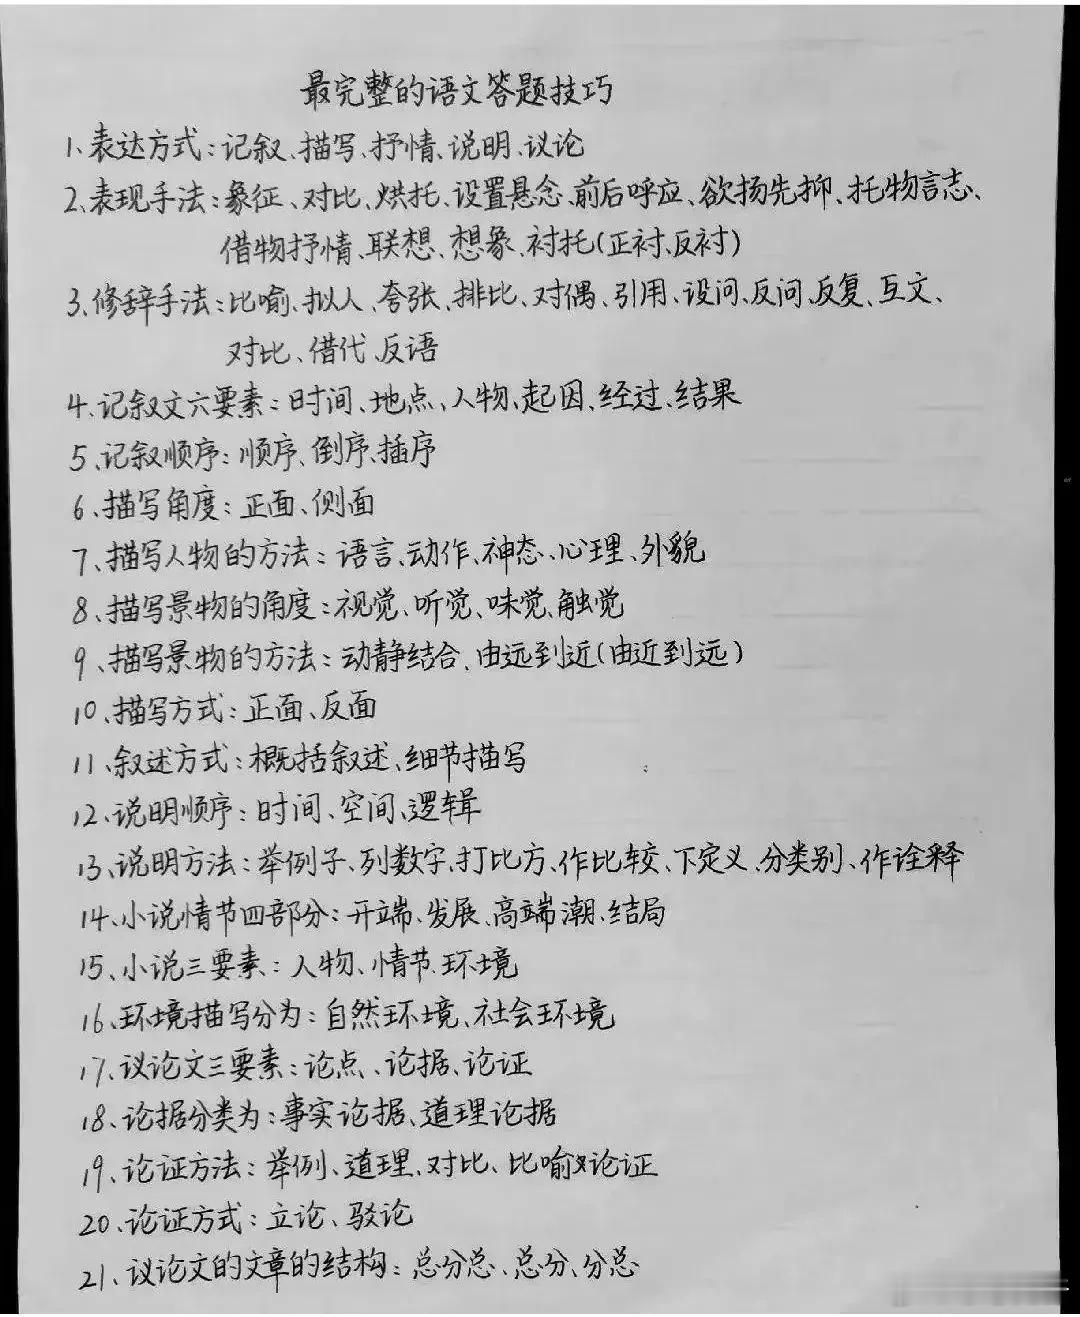 最完整的语文答题技巧
1、表达方式：记叙、描写、抒情、说明、议论
2、表现手法：象征、对比、烘托、设置悬念、前后呼应、欲扬先抑、托物言志、
借物抒情、联想、想象、衬托(正衬、反衬)
3、修辞手法：比喻、拟人、夸张、排比、对偶、引用、设问、反问、反复、互文、
对比、借代、反语
4、记叙文六要素：时间、地点、人物、起因、经过、结果
5、记叙顺序：顺序、倒序、插序
6、描写角度：正面、侧面
7、描写人物的方法：语言、动作、神态、心理、外貌
8、描写景物的角度：视觉、听觉、味觉、触觉
9、描写景物的方法：动静结合、由远到近(由近到远)
10、描写方式：正面、反面
11、叙述方式：概括叙述、细节描写
12、说明顺序：时间、空间、逻辑
13、说明方法：举例子、列数字、打比方、作比较、下定义、分类别、作诠释
14、小说情节四部分：开端、发展、高端潮、结局
15、小说三要素：人物、情节、环境
16、环境描写分为：自然环境、社会环境
17、议论文三要素：论点、论据、论证
18、论据分类为：事实论据、道理论据
19、论证方法：举例、道理、对比、比喻论证
20、论证方式：立论、驳论
21、议论文的文章的结构：总分总、总分、分总